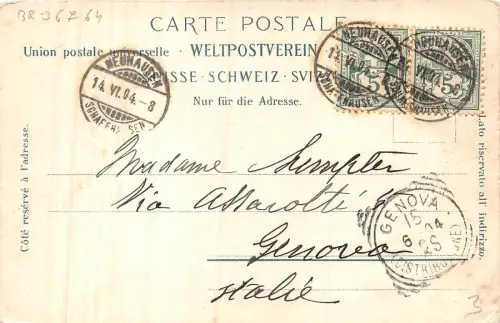 BR 96 Z 64
CARTE POSTALE
Union postale universelle · WELTPOSTVEREIN
SUISSE · SCHWEIZ · SVI
Nur für die Adresse.
NEUHAUSEN
14. VI. 04. - 8
SCHAFFHAUSEN
NEUHAUSEN
14. VI. 04
SCHAFFHAUSEN
5
NEUHAUSEN
5
Côté réservé à l'adresse.
Lato riservato all' indirizzo.
Madame Sumpter
Via Assarotti 6
Genova
Italie
GENOVA
15
6 04
2S
(DISTRIBUZIONE)
3